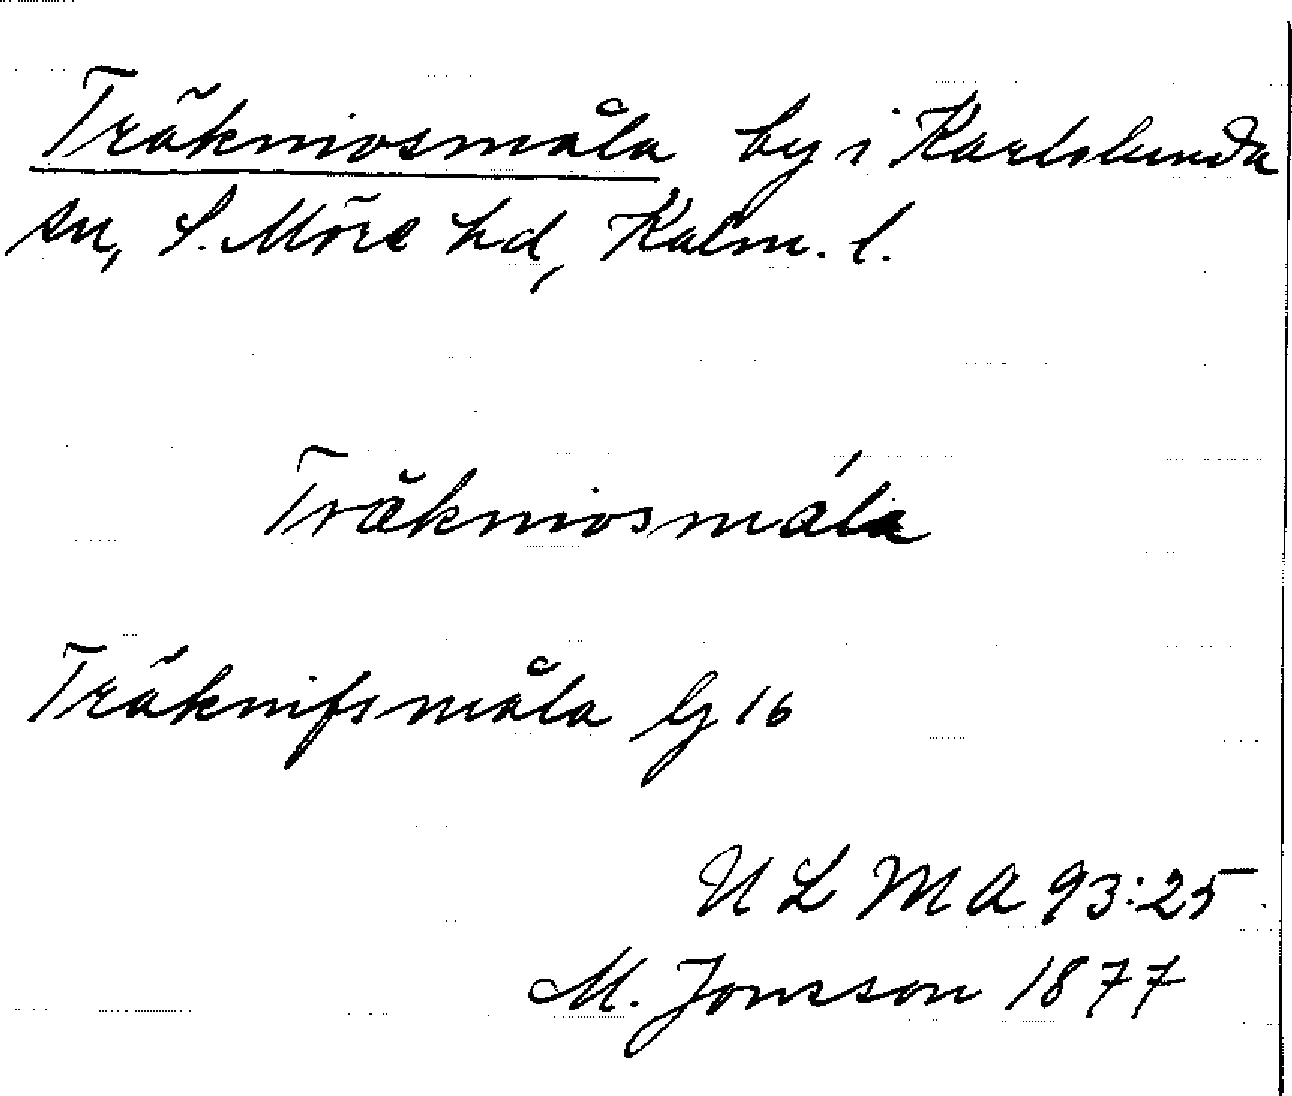 Träkniosmåla by i Karlslunda
sn, S. Möre hd, Kalm. l.
Träkniosmåla
Träknifsmåla G 16
ULMA 93:25
M. Jonsson 1877